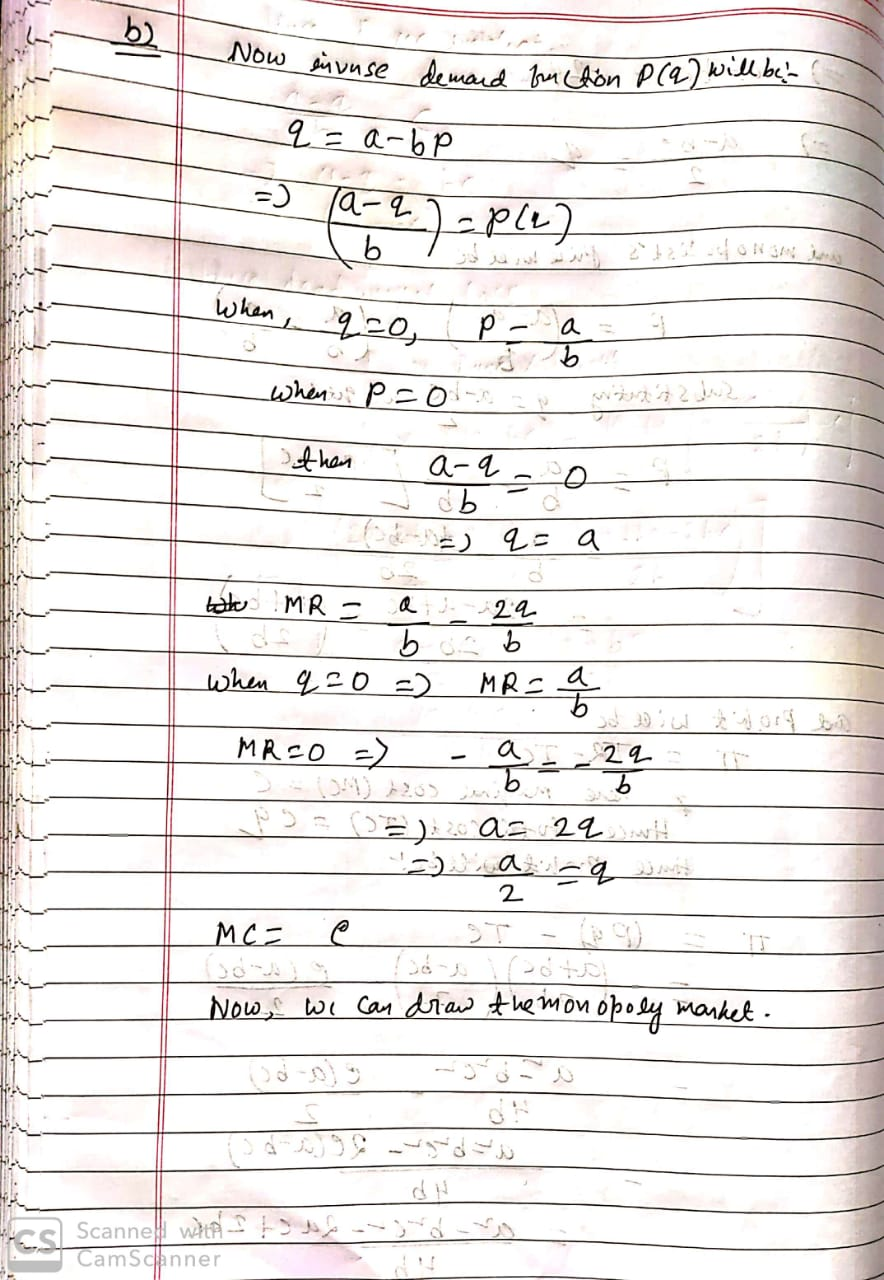 b)
Now invuse demand function P(q) will be:-
q = a-bp
=> (a-q/b) = P(q)
When, q=0, P = a/b
when P=0
then a-q/b = 0
=> q= a
MR = a/b - 2q/b
when q=0 => MR= a/b
MR=0 => - a/b = - 2q/b
=> a= 2q
=> a/2 = q
MC= c
Now, we can draw the monopoly market.
CS Scanned with
CamScanner